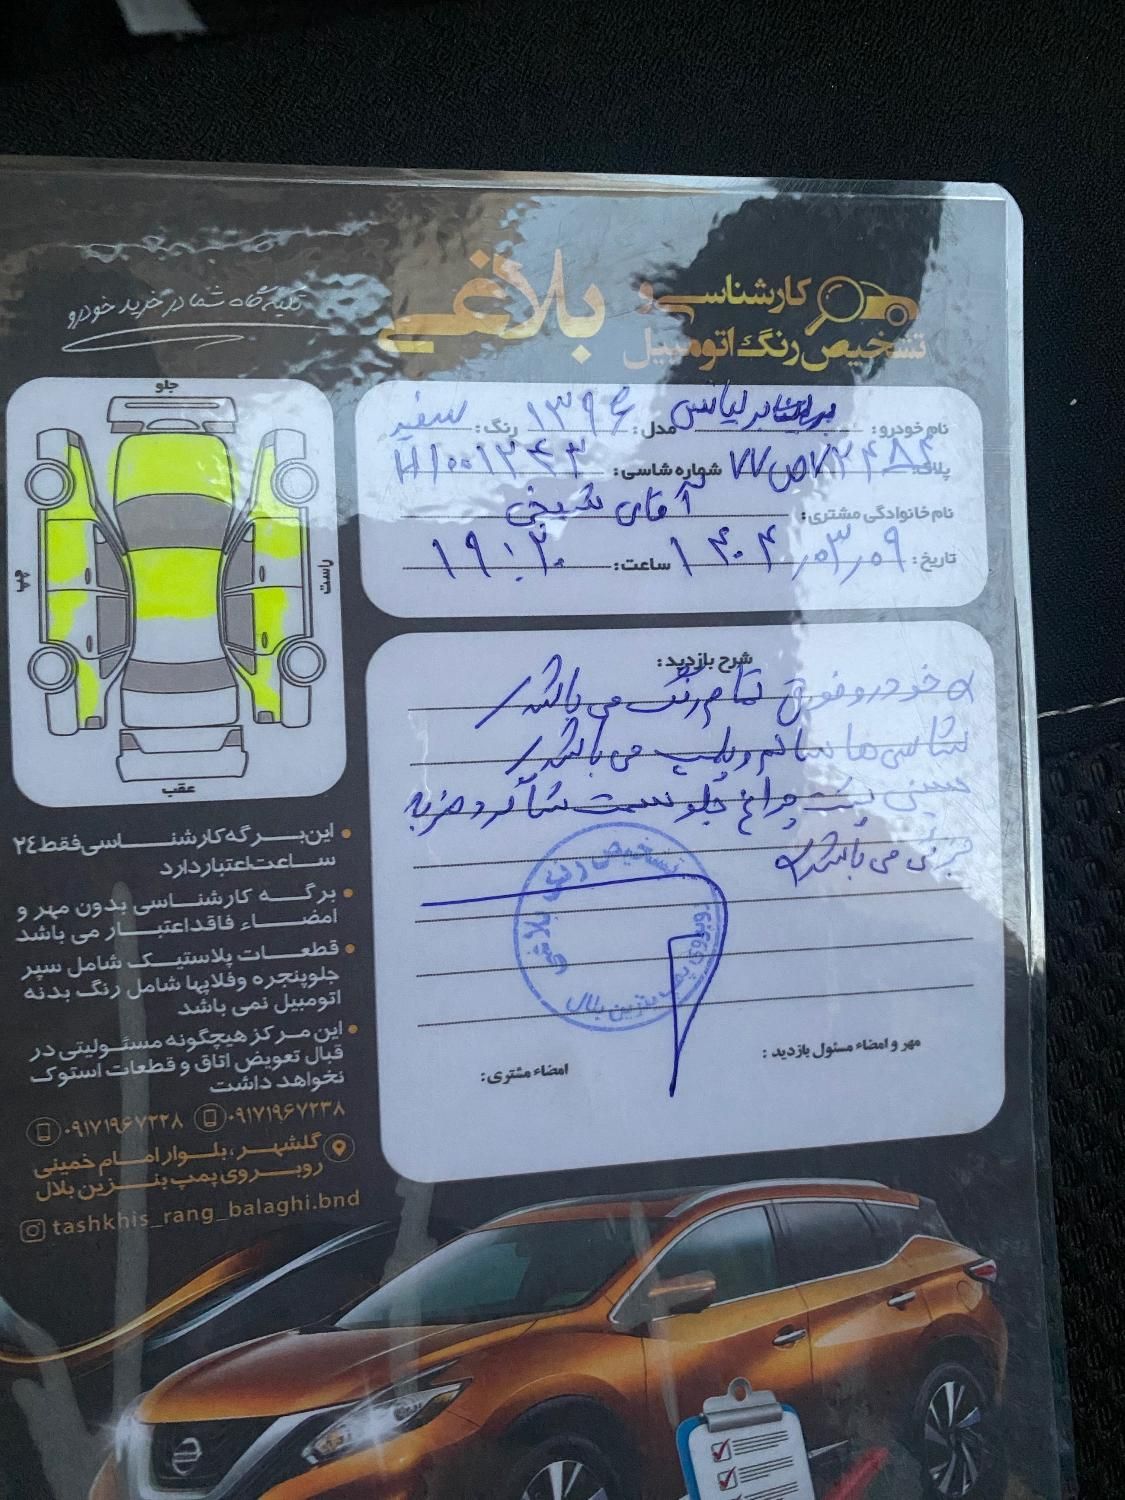 کارشناسی و
تشخیص رنگ اتومبیل
بلاغی
تکیه گاه شما در خرید خودرو
نام خودرو: برلیانس مدل: ۱۳۹۶ رنگ: سفید
پلاک: شماره شاسی: H۱۰۰۱۲۴۳
نام خانوادگی مشتری: آقای شیخی
تاریخ: ۱۴۰۴,۰۳,۰۹ ساعت: ۱۹:۲۰
جلو
راست
چپ
عقب
شرح بازدید:
خودرو فوق تمام رنگ می باشد/
شاسی ها سالم و پلمپ می باشد/
سینی پشت چراغ جلو سمت شاگرد ضربه
جزئی می باشد
تشخیص رنگ بلاغی
روبروی پمپ بنزین بلال
مهر و امضاء مسئول بازدید:
امضاء مشتری:
این برگه کارشناسی فقط ۲۴
ساعت اعتبار دارد
برگه کارشناسی بدون مهر و
امضاء فاقد اعتبار می باشد
قطعات پلاستیک شامل سپر
جلوپنجره و فلاپها شامل رنگ بدنه
اتومبیل نمی باشد
این مرکز هیچگونه مسئولیتی در
قبال تعویض اتاق و قطعات استوک
نخواهد داشت
۰۹۱۷۱۹۶۷۲۳۸ ۰۹۱۷۱۹۶۷۲۲۸
گلشهر، بلوار امام خمینی
روبروی پمپ بنزین بلال
tashkhis_rang_balaghi.bnd